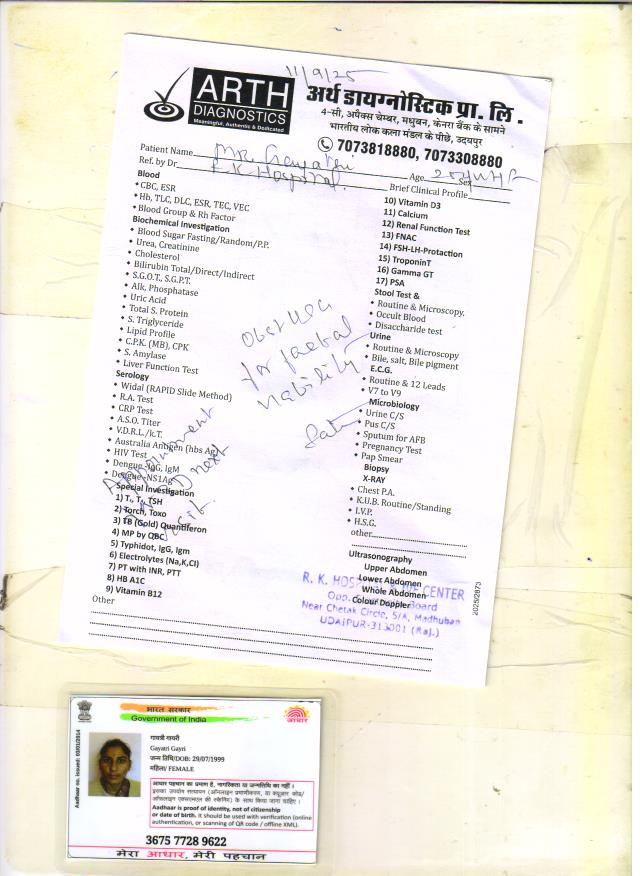 11/9/25
ARTH
DIAGNOSTICS
Meaningful, Authentic & Dedicated
अर्थ डायग्नोस्टिक प्रा. लि.
4-सी, अपैक्स चेम्बर, मधुबन, केनरा बैंक के सामने
भारतीय लोक कला मंडल के पीछे, उदयपुर
7073818880, 7073308880
Patient Name Gayatri Age Sex
Ref. by Dr R K Hospital. Brief Clinical Profile
Blood
CBC, ESR
Hb, TLC, DLC, ESR, TEC, VEC
Blood Group & Rh Factor
Biochemical Investigation
Blood Sugar Fasting/Random/P.P.
Urea, Creatinine
Cholesterol
Bilirubin Total/Direct/Indirect
S.G.O.T., S.G.P.T.
Alk, Phosphatase
Uric Acid
Total S. Protein
S. Triglyceride
Lipid Profile
C.P.K. (MB), CPK
S. Amylase
Liver Function Test
Serology
Widal (RAPID Slide Method)
R.A. Test
CRP Test
A.S.O. Titer
V.D.R.L./k.T.
Australia Antigen (hbs Ag)
HIV Test
Dengue-IgG, IgM
Dengue-NS1Ag
Special Investigation
1) T₃, T₄, TSH
2) Torch, Toxo
3) TB (Gold) Quantiferon
4) MP by QBC
5) Typhidot, IgG, Igm
6) Electrolytes (Na,K,CI)
7) PT with INR, PTT
8) HB A1C
9) Vitamin B12
Other
10) Vitamin D3
11) Calcium
12) Renal Function Test
13) FNAC
14) FSH-LH-Protaction
15) TroponinT
16) Gamma GT
17) PSA
Stool Test &
Routine & Microscopy.
Occult Blood
Disaccharide test
Urine
Routine & Microscopy
Bile, salt, Bile pigment
E.C.G.
Routine & 12 Leads
V7 to V9
Microbiology
Urine C/S
Pus C/S
Sputum for AFB
Pregnancy Test
Pap Smear
Biopsy
X-RAY
Chest P.A.
K.U.B. Routine/Standing
I.V.P.
H.S.G.
other
Ultrasonography
Upper Abdomen
Lower Abdomen
Whole Abdomen
Colour Doppler
2025/2873
Obst USG
for faetal
viability
Appointment
next
visit.
R. K. HOSPITAL & IVF CENTER
Opp. Board
Near Chetak Circle, 5/A, Madhuban
UDAIPUR-313001 (Raj.)
भारत सरकार
Government of India
आधार
Aadhaar no. issued: 03/01/2014
गायत्री गायरी
Gayatri Gayri
जन्म तिथि/DOB: 29/07/1999
महिला/ FEMALE
आधार पहचान का प्रमाण है, नागरिकता या जन्मतिथि का नहीं।
इसका उपयोग सत्यापन (ऑनलाइन प्रमाणीकरण, या क्यूआर कोड/
ऑफलाइन एक्सएमएल की स्कैनिंग) के साथ किया जाना चाहिए।
Aadhaar is proof of identity, not of citizenship
or date of birth. It should be used with verification (online
authentication, or scanning of QR code / offline XML).
3675 7728 9622
मेरा आधार, मेरी पहचान